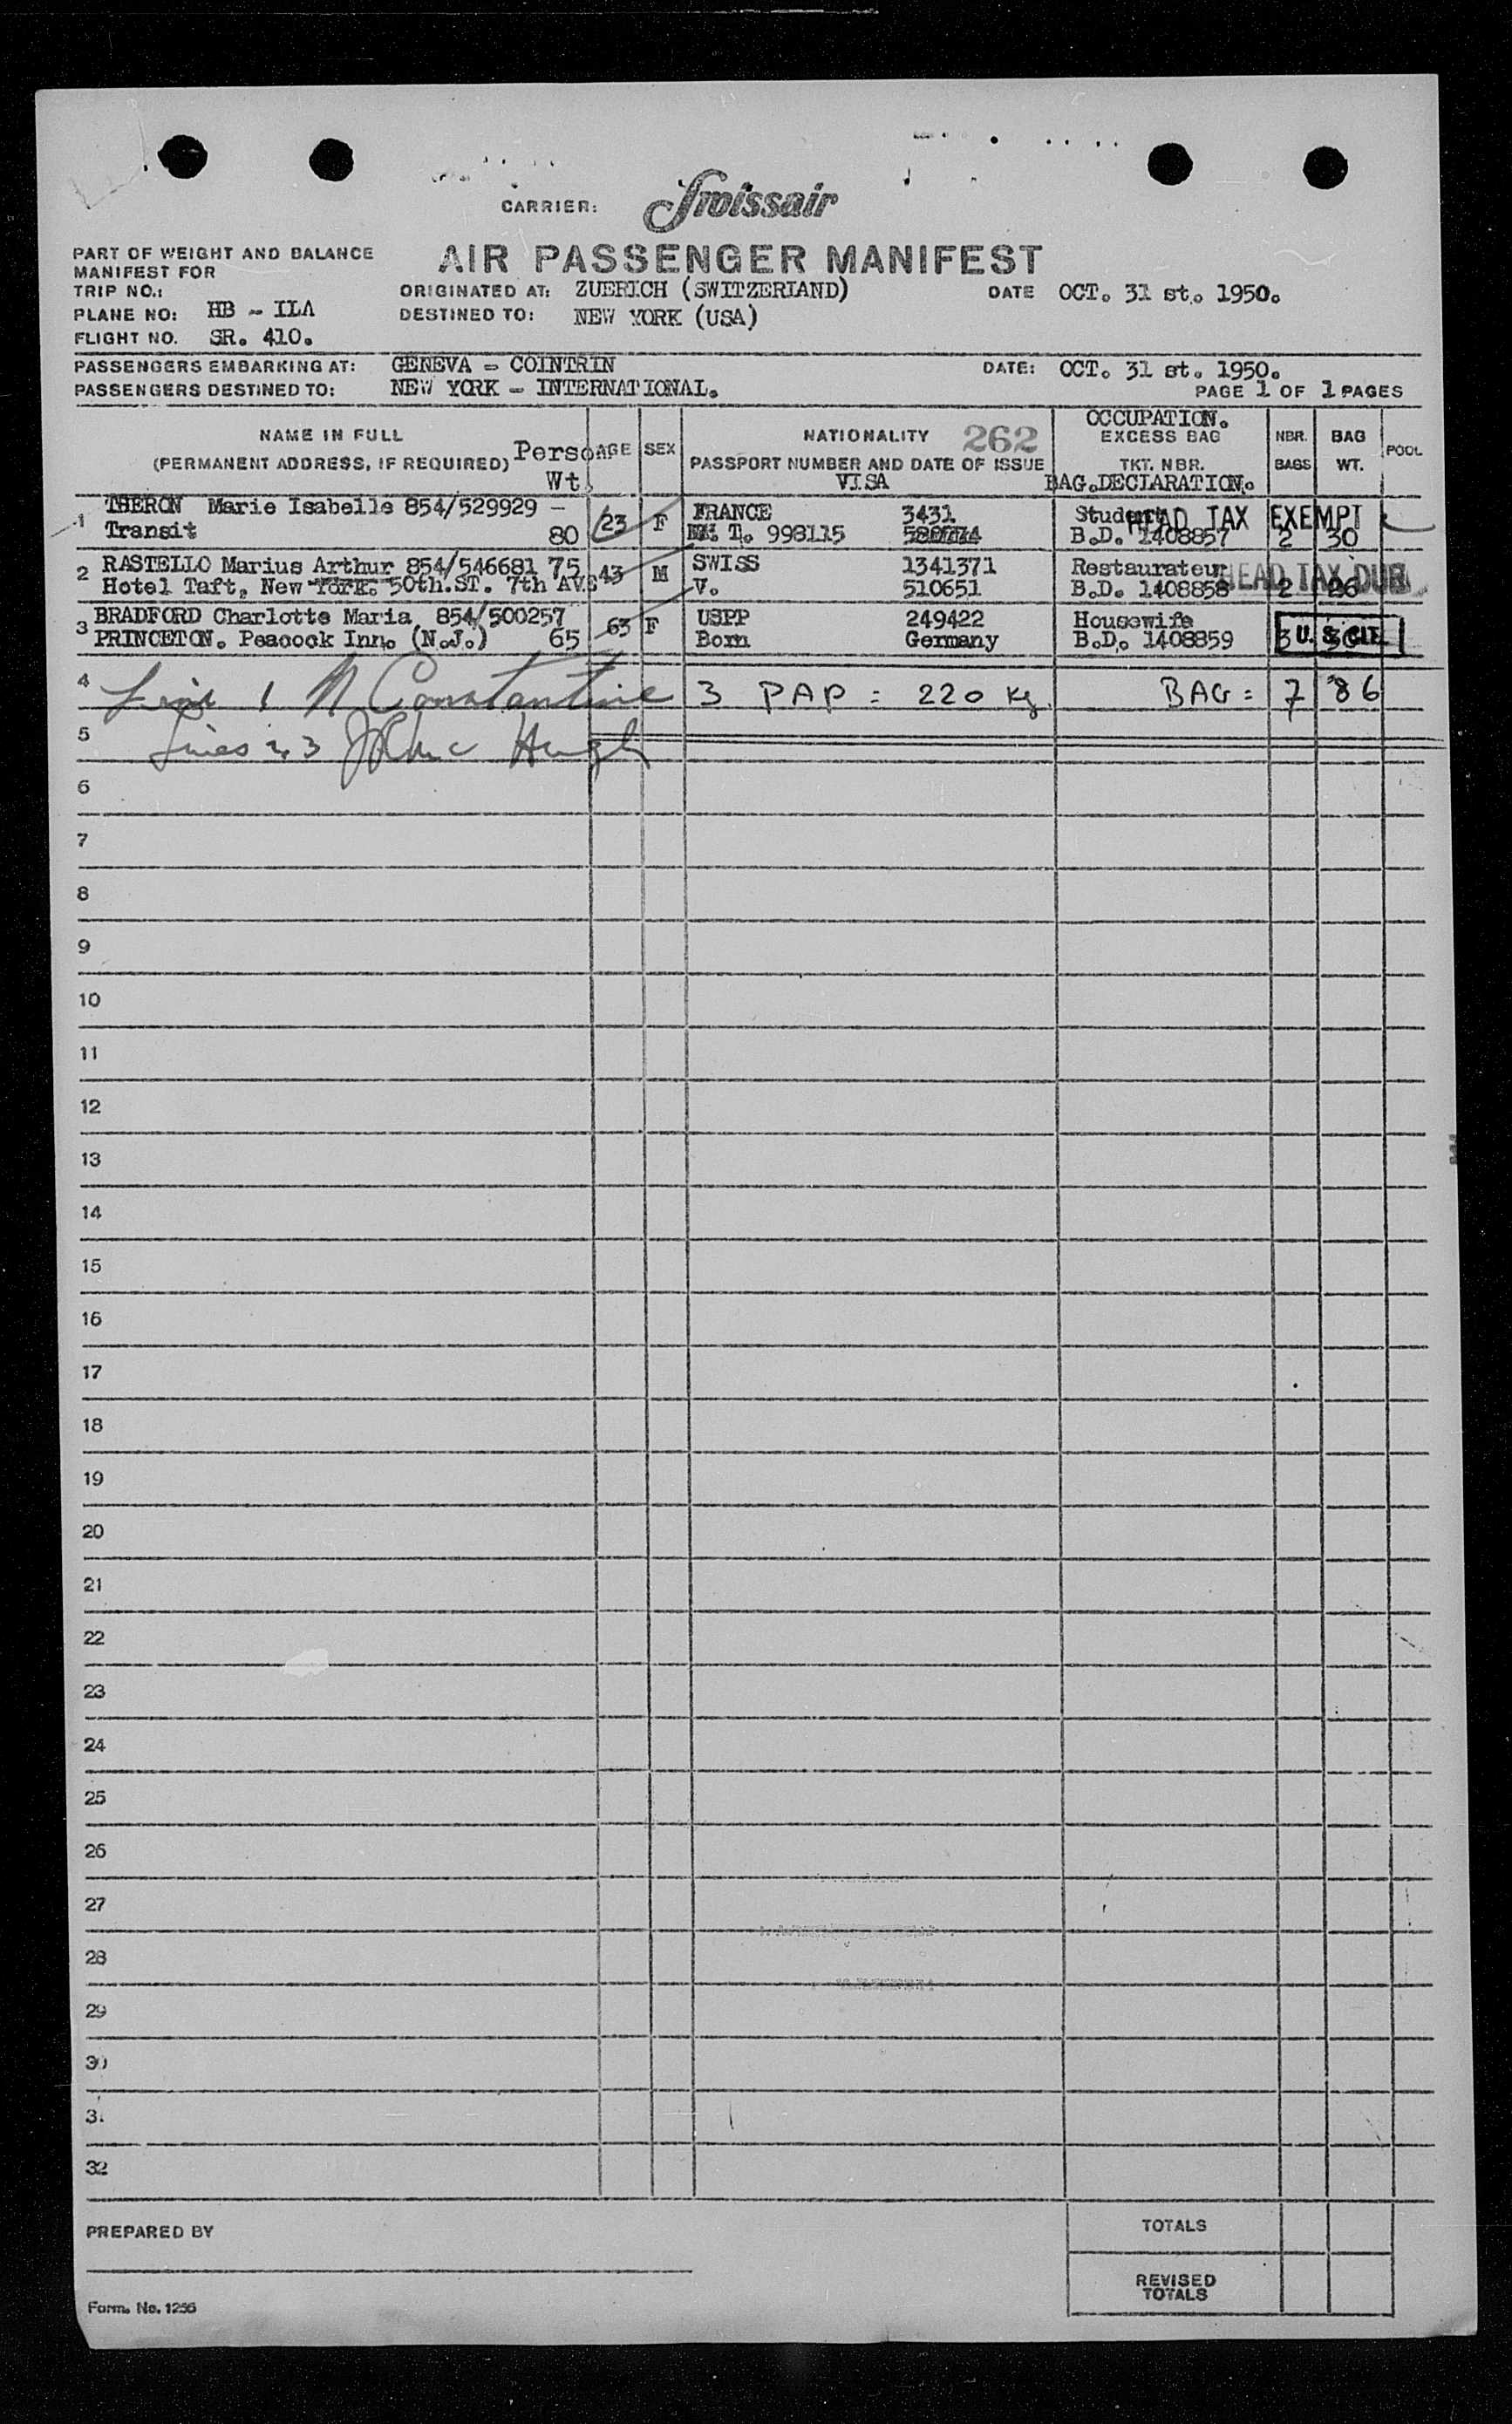 CARRIER: Swissair
PART OF WEIGHT AND BALANCE
MANIFEST FOR
AIR PASSENGER MANIFEST
TRIP NO.:
ORIGINATED AT: ZUERICH (SWITZERLAND)
DATE OCT. 31 st. 1950.
PLANE NO: HB - ILA
DESTINED TO: NEW YORK (USA)
FLIGHT NO. SR. 410.
PASSENGERS EMBARKING AT: GENEVA - COINTRIN
DATE: OCT. 31 st. 1950.
PASSENGERS DESTINED TO: NEW YORK - INTERNATIONAL.
PAGE 1 OF 1 PAGES
NAME IN FULL
(PERMANENT ADDRESS, IF REQUIRED)
Perso
Wt.
AGE
SEX
NATIONALITY 262
PASSPORT NUMBER AND DATE OF ISSUE
VISA
OCCUPATION.
EXCESS BAG
TKT. NBR.
BAG.DECLARATION.
NBR.
BAGS
BAG
WT.
POOL
1 THERON Marie Isabelle 854/529929 - 23 F FRANCE 3431 Student HEAD TAX EXEMPT
Transit 80 T. 998115 B.D. 1408857 2 30
2 RASTELLO Marius Arthur 854/546681 75 43 M SWISS 1341371 Restaurateur HEAD TAX DUE
Hotel Taft, New York. 50th.ST. 7th AV. V. 510651 B.D. 1408858 2 26
3 BRADFORD Charlotte Maria 854/500257 63 F USPP 249422 Housewife
PRINCETON. Peacock Inn. (N.J.) 65 Born Germany B.D. 1408859 3 30 U. S. CIT.
4 Line 1 N Constantine 3 PAP = 220 Kg. BAG = 7 86
5 Lines 2, 3
6
7
8
9
10
11
12
13
14
15
16
17
18
19
20
21
22
23
24
25
26
27
28
29
30
31
32
PREPARED BY
TOTALS
REVISED
TOTALS
Form. No. 1256